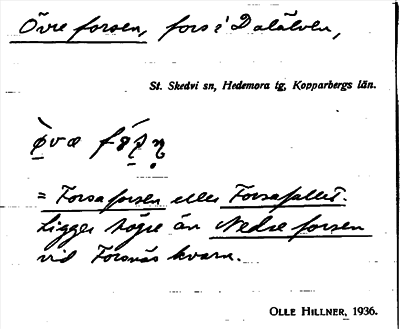 Övre forsen, fors i Dalälven,
St. Skedvi sn, Hedemora tg, Kopparbergs län.
= Forsaforsen eller Forsafallet.
Ligger högre än Nedre forsen
vid Forsnäs kvarn.
OLLE HILLNER, 1936.